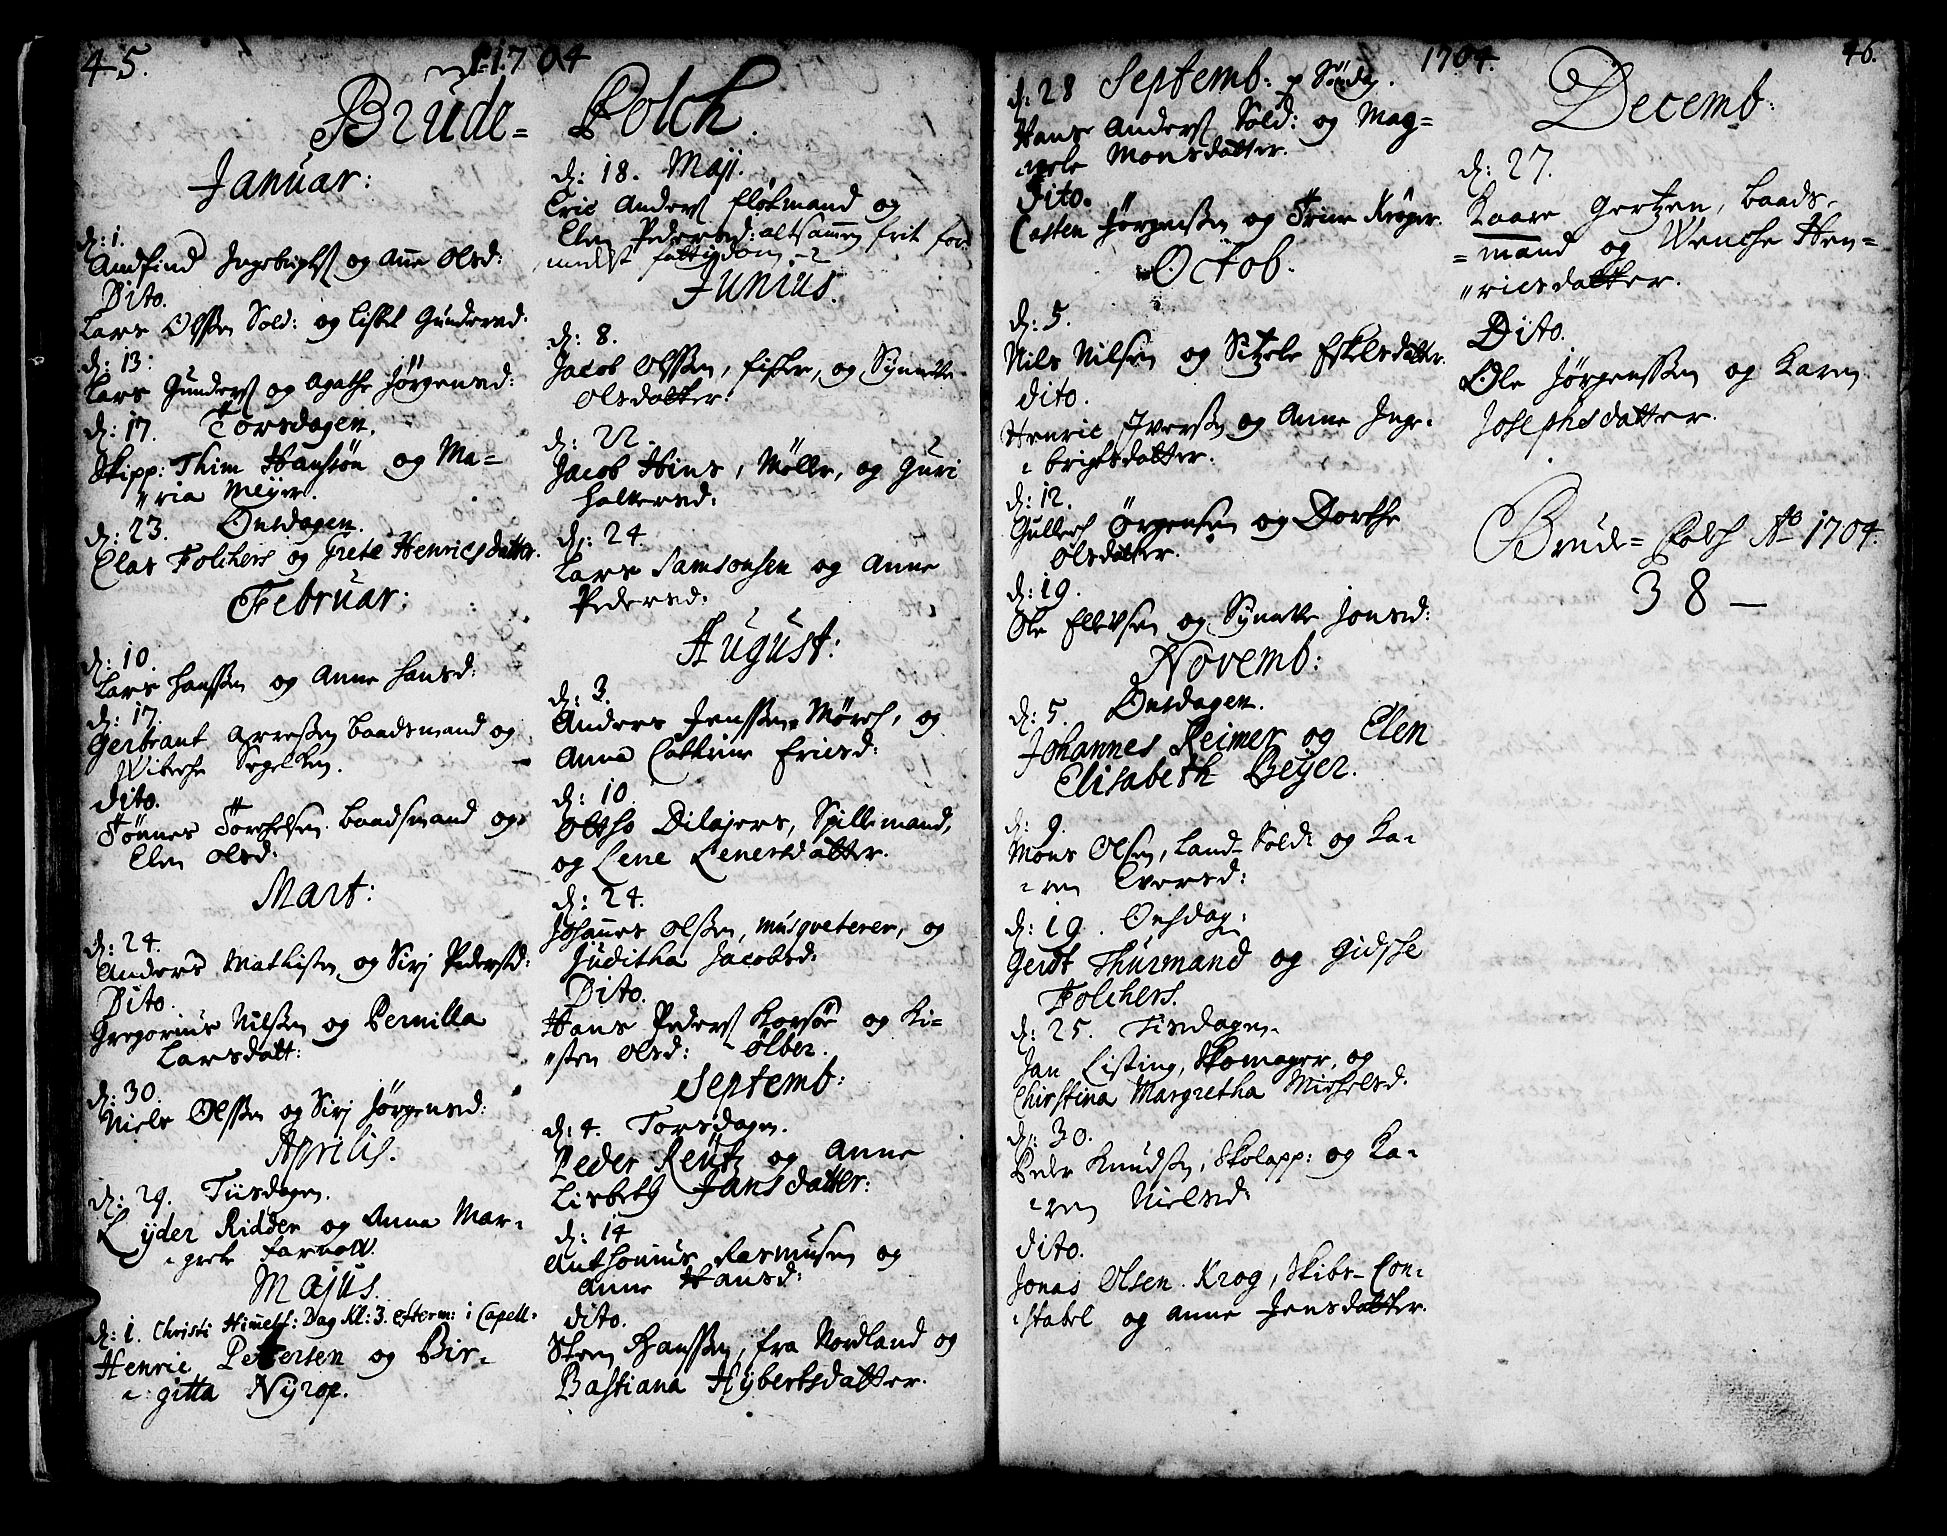 45.
1704
Brude=
Folch.
Januar:
d: 1.
Andfind Ingebrigts og Anne Olsd:
Dito.
Lars Olssen Sold: og Lisbet Gundersd.
d: 13:
Lars Gunders og Agathe Jørgensd:
d: 17. Torsdagen.
Skipp: Thim Hanssøn og Ma=
"ria Meÿer.
d: 23. Onsdagen.
Clas Folchers og Grete Henricsdatter.
Februar:
d: 10.
Lars Hanssen og Anne Hansd:
d: 17.
Gerbrant Arressen Baadsmand og
Wibeche Segelken.
Dito.
Tönnes Torchelsen Baadsmand og
Elen Olsd:
Mart:
d: 24.
Anders Mathissen og Sirj Pedersd:
Dito.
Gregorius Nilssen og Pernilla
Larsdatt:
d: 30.
Niels Olssen og Sirj Jørgensd:
Aprilis.
d: 29. Tiisdagen.
Lÿder Ridder og Anna Mar=
grete
Majus.
d: 1. Christi Himelf: Dag Kl: 3. efterm: i Capell:
Henric Pettersen og Bir=
gitta Nÿrop.
d: 18. Maji.
Eric Anders Fløtmand og
Elen Pedersd: altsammen frit for
medelst fattigdom.
Junius.
d: 8.
Jacob Olssen, Fisker, og Synneve
Olsdatter.
d: 22.
Jacob Hins, Møller, og Guri
Halversd:
d: 24.
Lars Samsonsen og Anne
Pedersd:
August:
d: 3.
Anders Jenssen Mørch, og
Anna Cathrine Ericsd:
d: 10.
Oltho Dilajers, Spillemand,
og Lene Lenertsdatter.
d: 24.
Johannes Olssen, Musqveterer, og
Juditha Jacobsd:
Dito.
Hans Peders Korsøe og Ki=
"sten Olsd: Ölber.
Septemb:
d: 4. Torsdagen.
Peder Reütz og Anne
Lisbeth Jansdatter:
d: 14
Anthonius Rasmusen og
Anne Hansd:
dito.
Steen Hanssen, fra Nordland og
Bastiana Hÿbertsdatter.
1704.
46.
d: 28 Septemb: p Söndag.
Hans Anders Sold: og Mag=
nele Monsdatter.
Dito.
Casten Jørgenssen og Trine Krøger.
Octob.
d: 5.
Nils Nilsen og Sitzele Eskelsdatter.
dito.
Henric Iverssen og Anne Inge=
brigtsdatter.
d: 12.
Gullech Örgensen og Dorthe
Olsdatter.
d: 19.
Ole Ellevsen og Synneve Jonsd:
Novemb:
d: 5. Onsdagen.
Johannes Reimer og Elen
Elisabeth Beÿer.
d: 9.
Mons Olsen, Land-Sold: og Ka=
ren Iversd:
d: 19. Onsdag:
Gerdt Thürmand og Gidsche
Folchers.
d: 25. Tisdagen.
Jan Listing, Skomager, og
Christina Margretha Michelsd.
d: 30.
Peder Knudsen, Skolapp: og Ka=
ren Nielsd.
dito.
Jonas Olsen Krog, Skibs-Con=
stabel og Anne Jensdatter.
Decemb:
d: 27.
Kaare Gertzen, Baads=
=mand og Wenche Hen=
"ricsdatter.
Dito.
Ole Jørgenssen og Karen
Josephsdatter.
Brude=Folch Ao 1704.
38 —